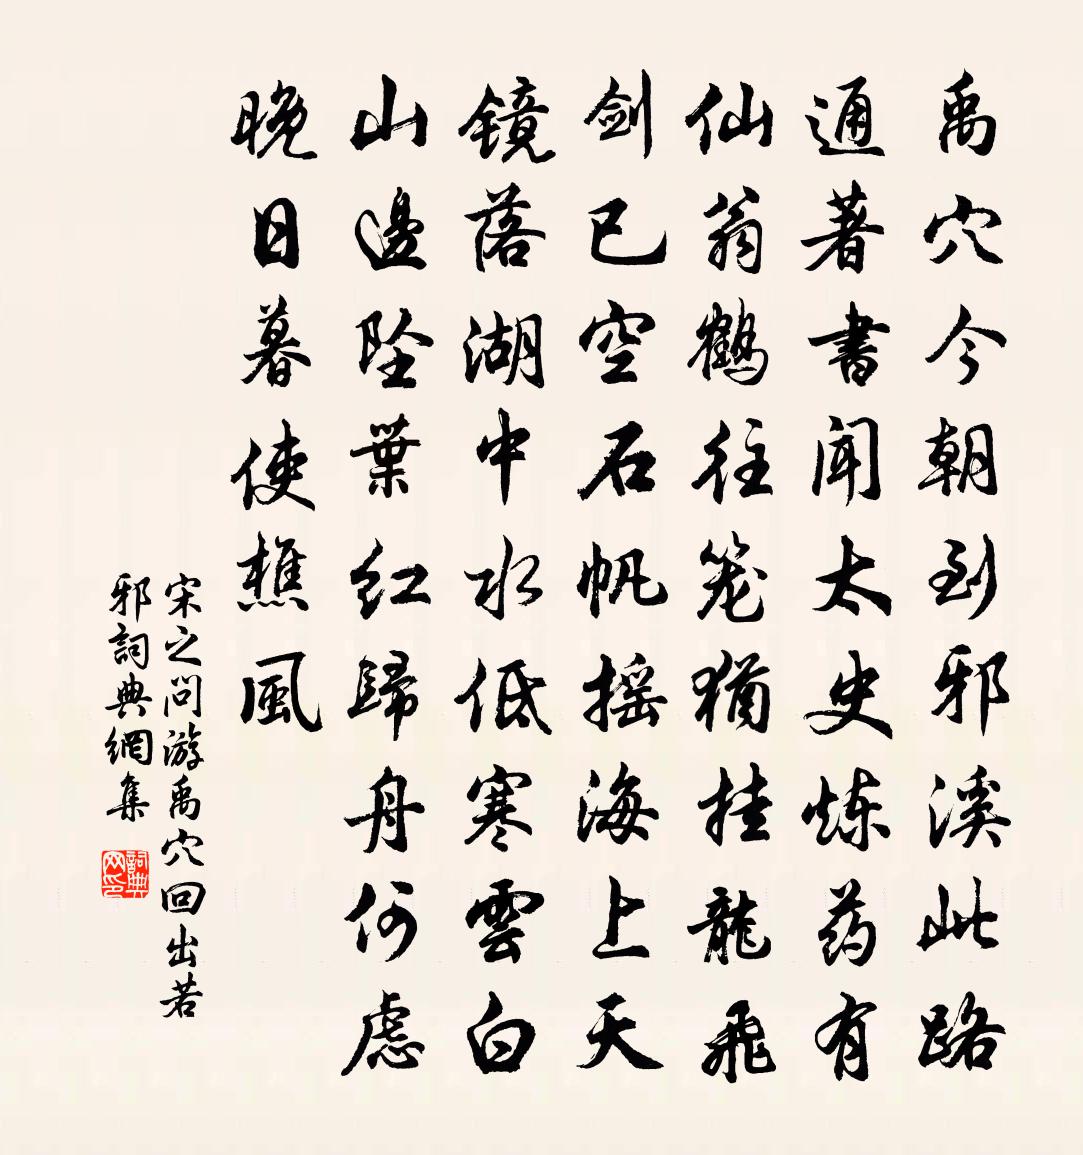 禹穴今朝到邪溪此路
通著書聞太史炼药有
仙翁鶴往笼猶挂龍飛
剑已空石帆摇海上天
镜落湖中水低寒雲白
山邊坠葉红歸舟何慮
晚日暮使樵風
宋之问游禹穴回出若
邪詞典網集
詞典网印